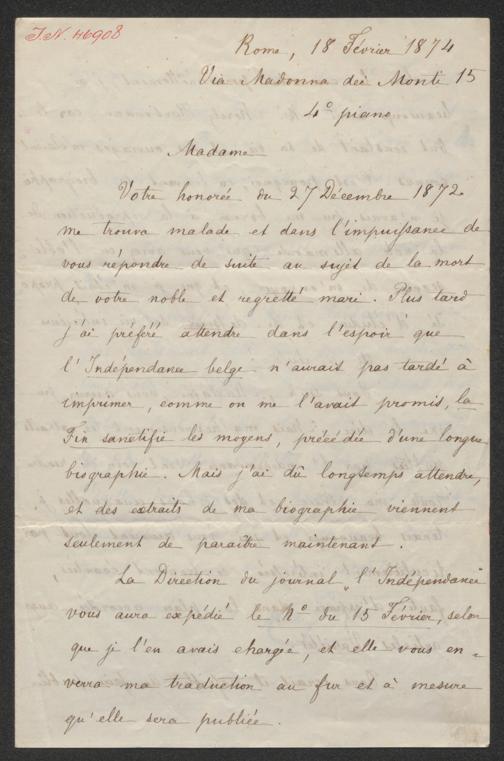 I.N. 46908
Rome, 18 Février 1874
Via Madonna dei Monti 15
4° piano
Madame
Votre honorée du 27 Décembre 1872
me trouva malade et dans l'impuissance de
vous répondre de suite au sujet de la mort
de votre noble et regretté mari. Plus tard
j'ai préféré attendre dans l'espoir que
l'Indépendance belge n'aurait pas tardé à
imprimer, comme on me l'avait promis, la
Fin sanctifie les moyens, précédée d'une longue
biographie. Mais j'ai dû longtemps attendre,
et des extraits de ma biographie viennent
seulement de paraître maintenant.
La Direction du journal „l'Indépendance"
vous aura expédié le No du 15 Février, selon
que je l'en avais chargée, et elle vous en-
verra ma traduction au fur et à mesure
qu'elle sera publiée.